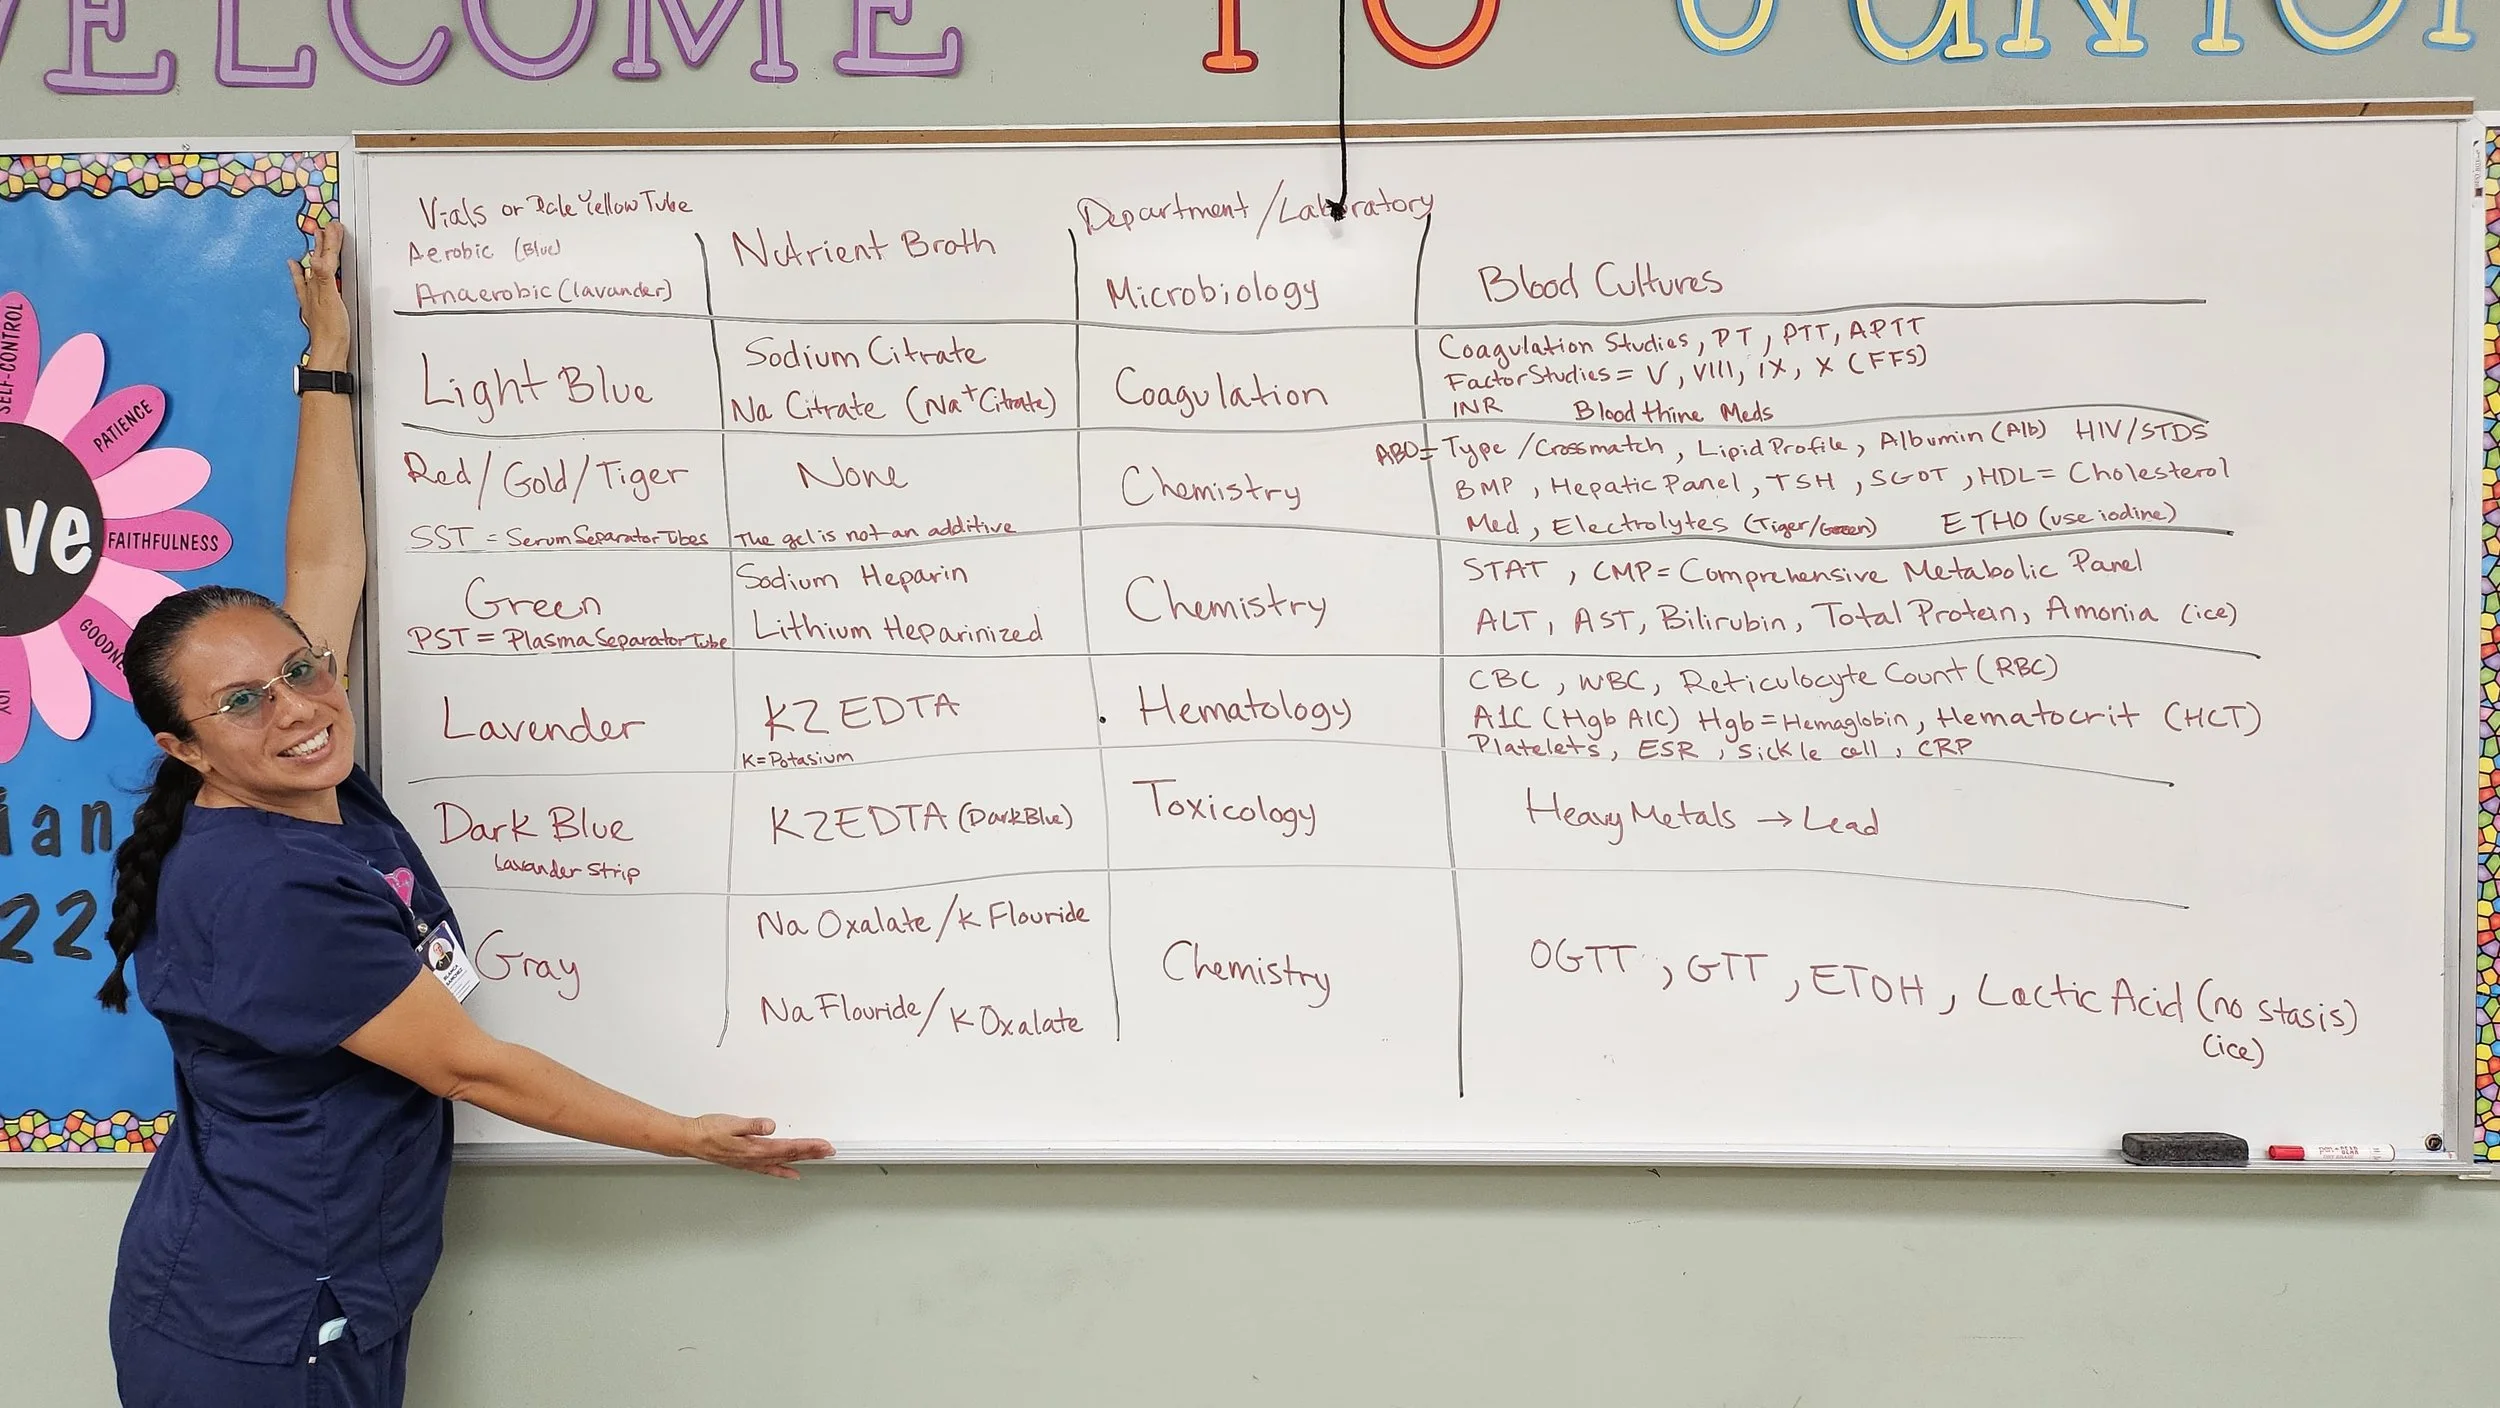 WELCOME TO JUNIOR
SELF-CONTROL
PATIENCE
FAITHFULNESS
JOY
ve
ian
22
Vials or Pale Yellow Tube
Aerobic (Blue)
Anaerobic (lavander)
Nutrient Broth
Department/Laboratory
Microbiology
Blood Cultures
Light Blue
Sodium Citrate
Na Citrate (Na+ Citrate)
Coagulation
Coagulation Studies, PT, PTT, APTT
Factor Studies = V, VIII, IX, X (FFS)
INR Blood thine Meds
Red/Gold/Tiger
SST = Serum Separator Tubes
None
The gel is not an additive
Chemistry
ABO = Type/Crossmatch, Lipid Profile, Albumin (Alb) HIV/STDS
BMP, Hepatic Panel, TSH, SGOT, HDL = Cholesterol
Med, Electrolytes (Tiger/Green) ETHO (use iodine)
Green
PST = Plasma Separator Tube
Sodium Heparin
Lithium Heparinized
Chemistry
STAT, CMP = Comprehensive Metabolic Panel
ALT, AST, Bilirubin, Total Protein, Amonia (ice)
Lavender
K2 EDTA
K=Potasium
Hematology
CBC, WBC, Reticulocyte Count (RBC)
A1C (Hgb A1C) Hgb = Hemaglobin, Hematocrit (HCT)
Platelets, ESR, Sickle cell, CRP
Dark Blue
Lavander strip
K2EDTA (Dark Blue)
Toxicology
Heavy Metals → Lead
Gray
Na Oxalate/K Flouride
Na Flouride/K Oxalate
Chemistry
OGTT, GTT, ETOH, Lactic Acid (no stasis)
(ice)
BLANCA
SANCHEZ